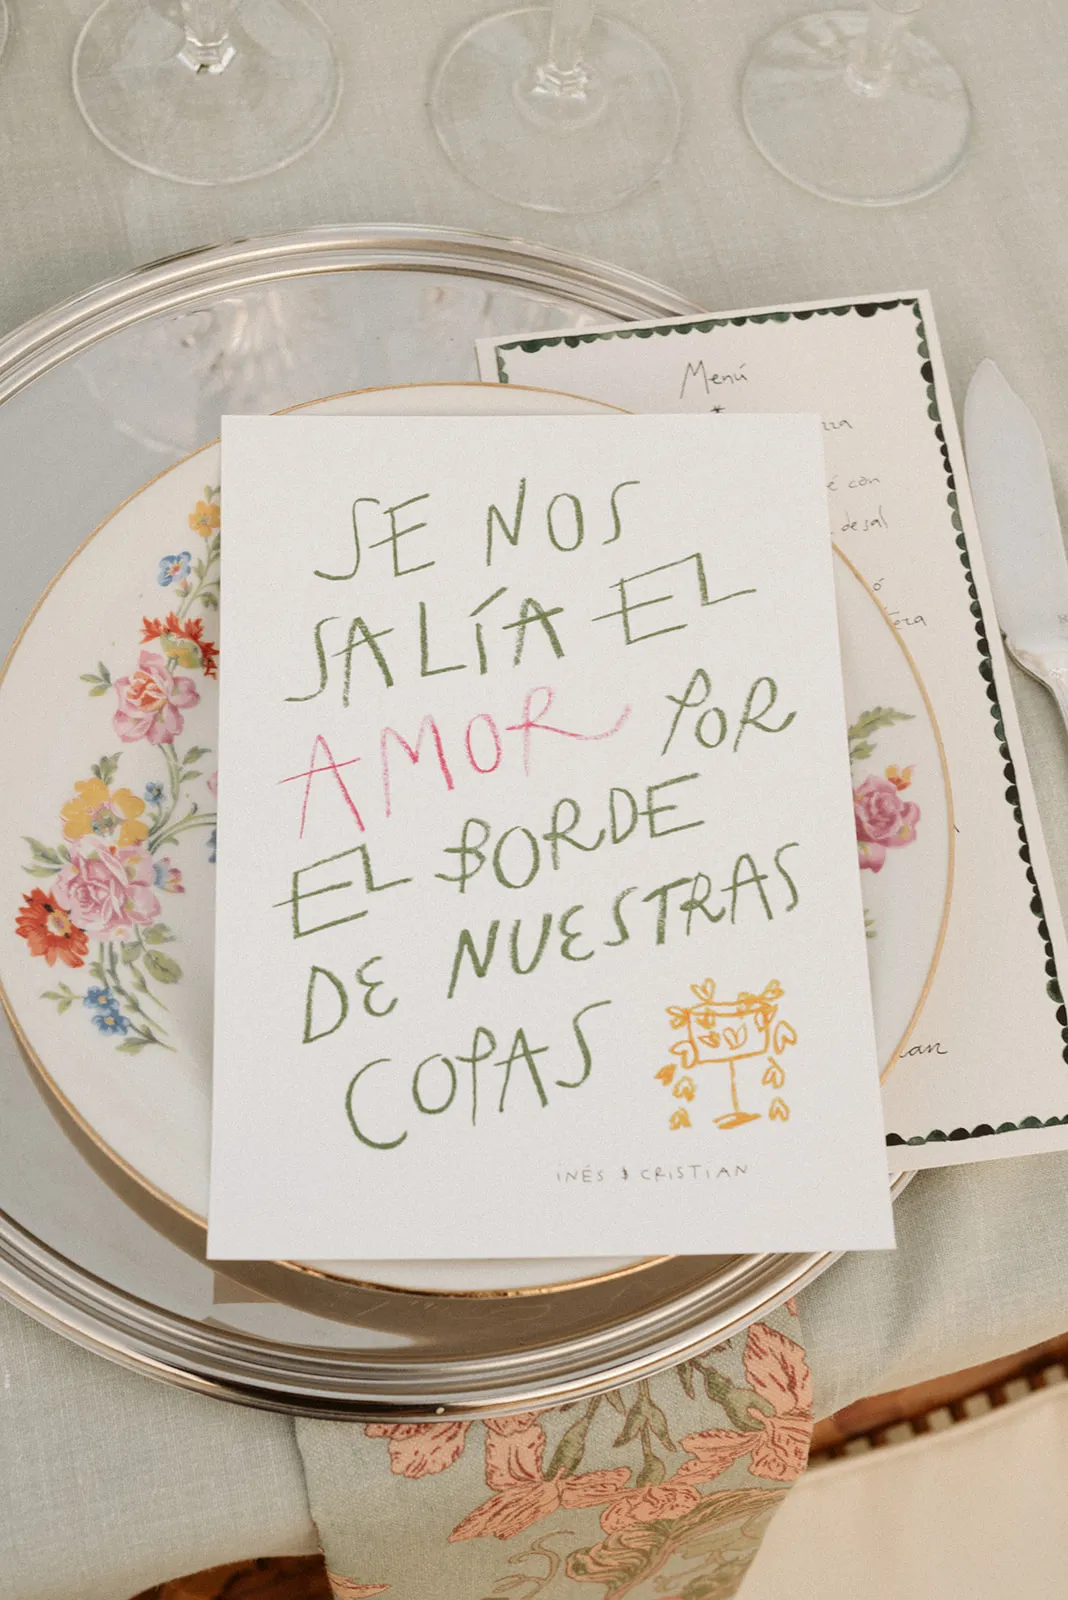 SE NOS
SALÍA EL
AMOR POR
EL BORDE
DE NUESTRAS
COPAS
INÉS & CRISTIAN
Menú
con
de sal